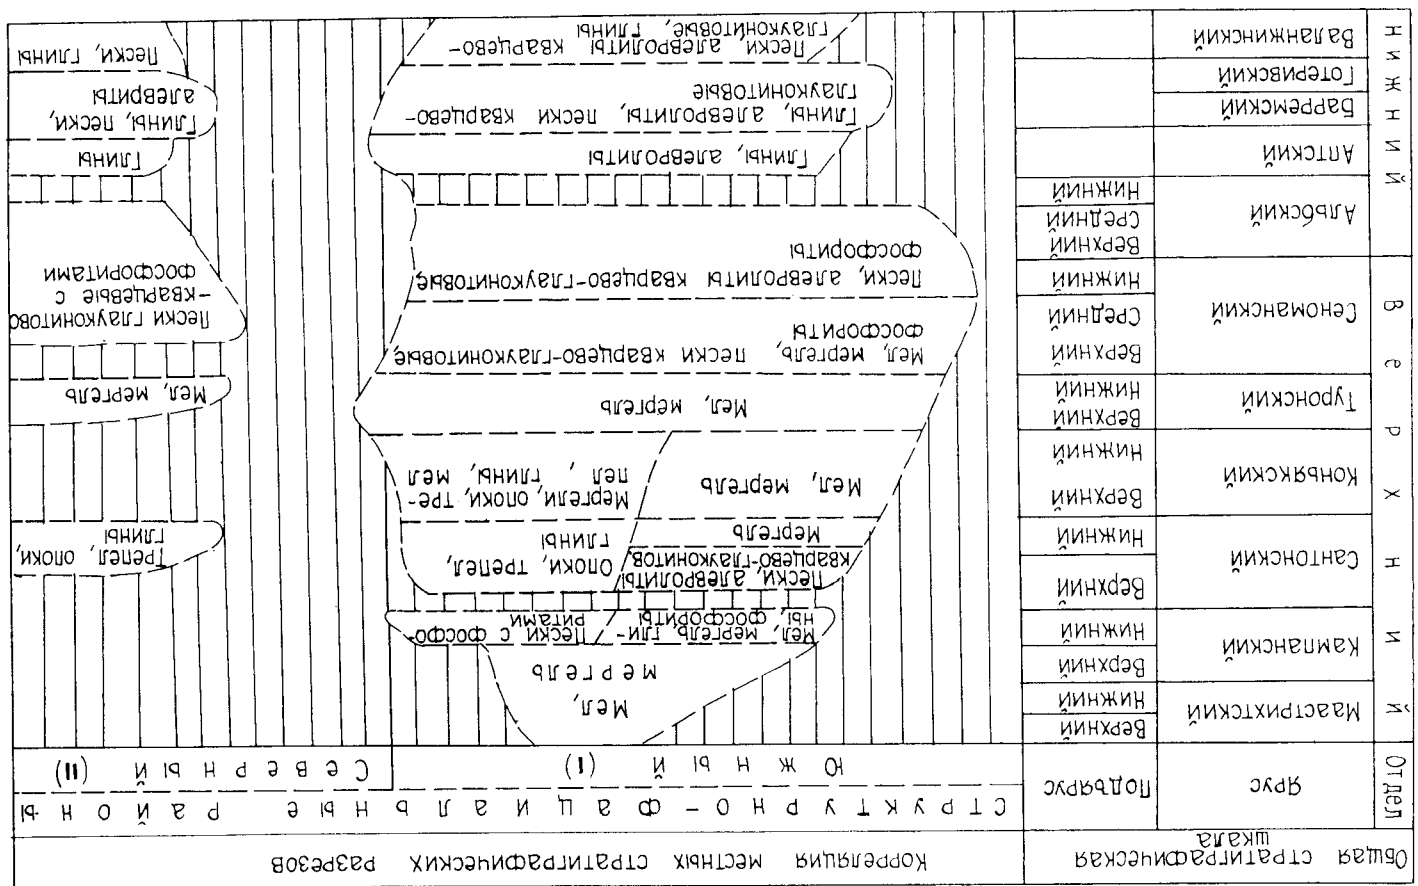 Общая стратиграфическая
шкала
Корреляция местных стратиграфических разрезов
Отдел
Ярус
Подъярус
Структурно-фациальные районы
Южный (I)
Северный (II)
Верхний
Маастрихтский
Верхний
Нижний
Кампанский
Верхний
Нижний
Сантонский
Верхний
Нижний
Коньякский
Верхний
Нижний
Туронский
Верхний
Нижний
Сеноманский
Верхний
Средний
Нижний
Нижний
Альбский
Верхний
Средний
Нижний
Аптский
Барремский
Готеривский
Валанжинский
Мел,
мергель
Мел, мергель, гли-
ны, фосфориты
Пески с фосфо-
ритами
Пески, алевролиты
кварцево-глауконитов.
Мергель
Опоки, трепел,
глины
Мел, мергель
Мергели, опоки, тре-
пел, глины, мел
Мел, мергель
Мел, мергель, пески кварцево-глауконитовые,
фосфориты
Пески, алевролиты кварцево-глауконитовые,
фосфориты
Глины, алевролиты
Глины, алевролиты, пески кварцево-
глауконитовые
Пески, алевролиты кварцево-
глауконитовые, глины
Трепел, опоки,
глины
Мел, мергель
Пески глауконитово
-кварцевые с
фосфоритами
Глины
Глины, пески,
алевриты
Пески, глины